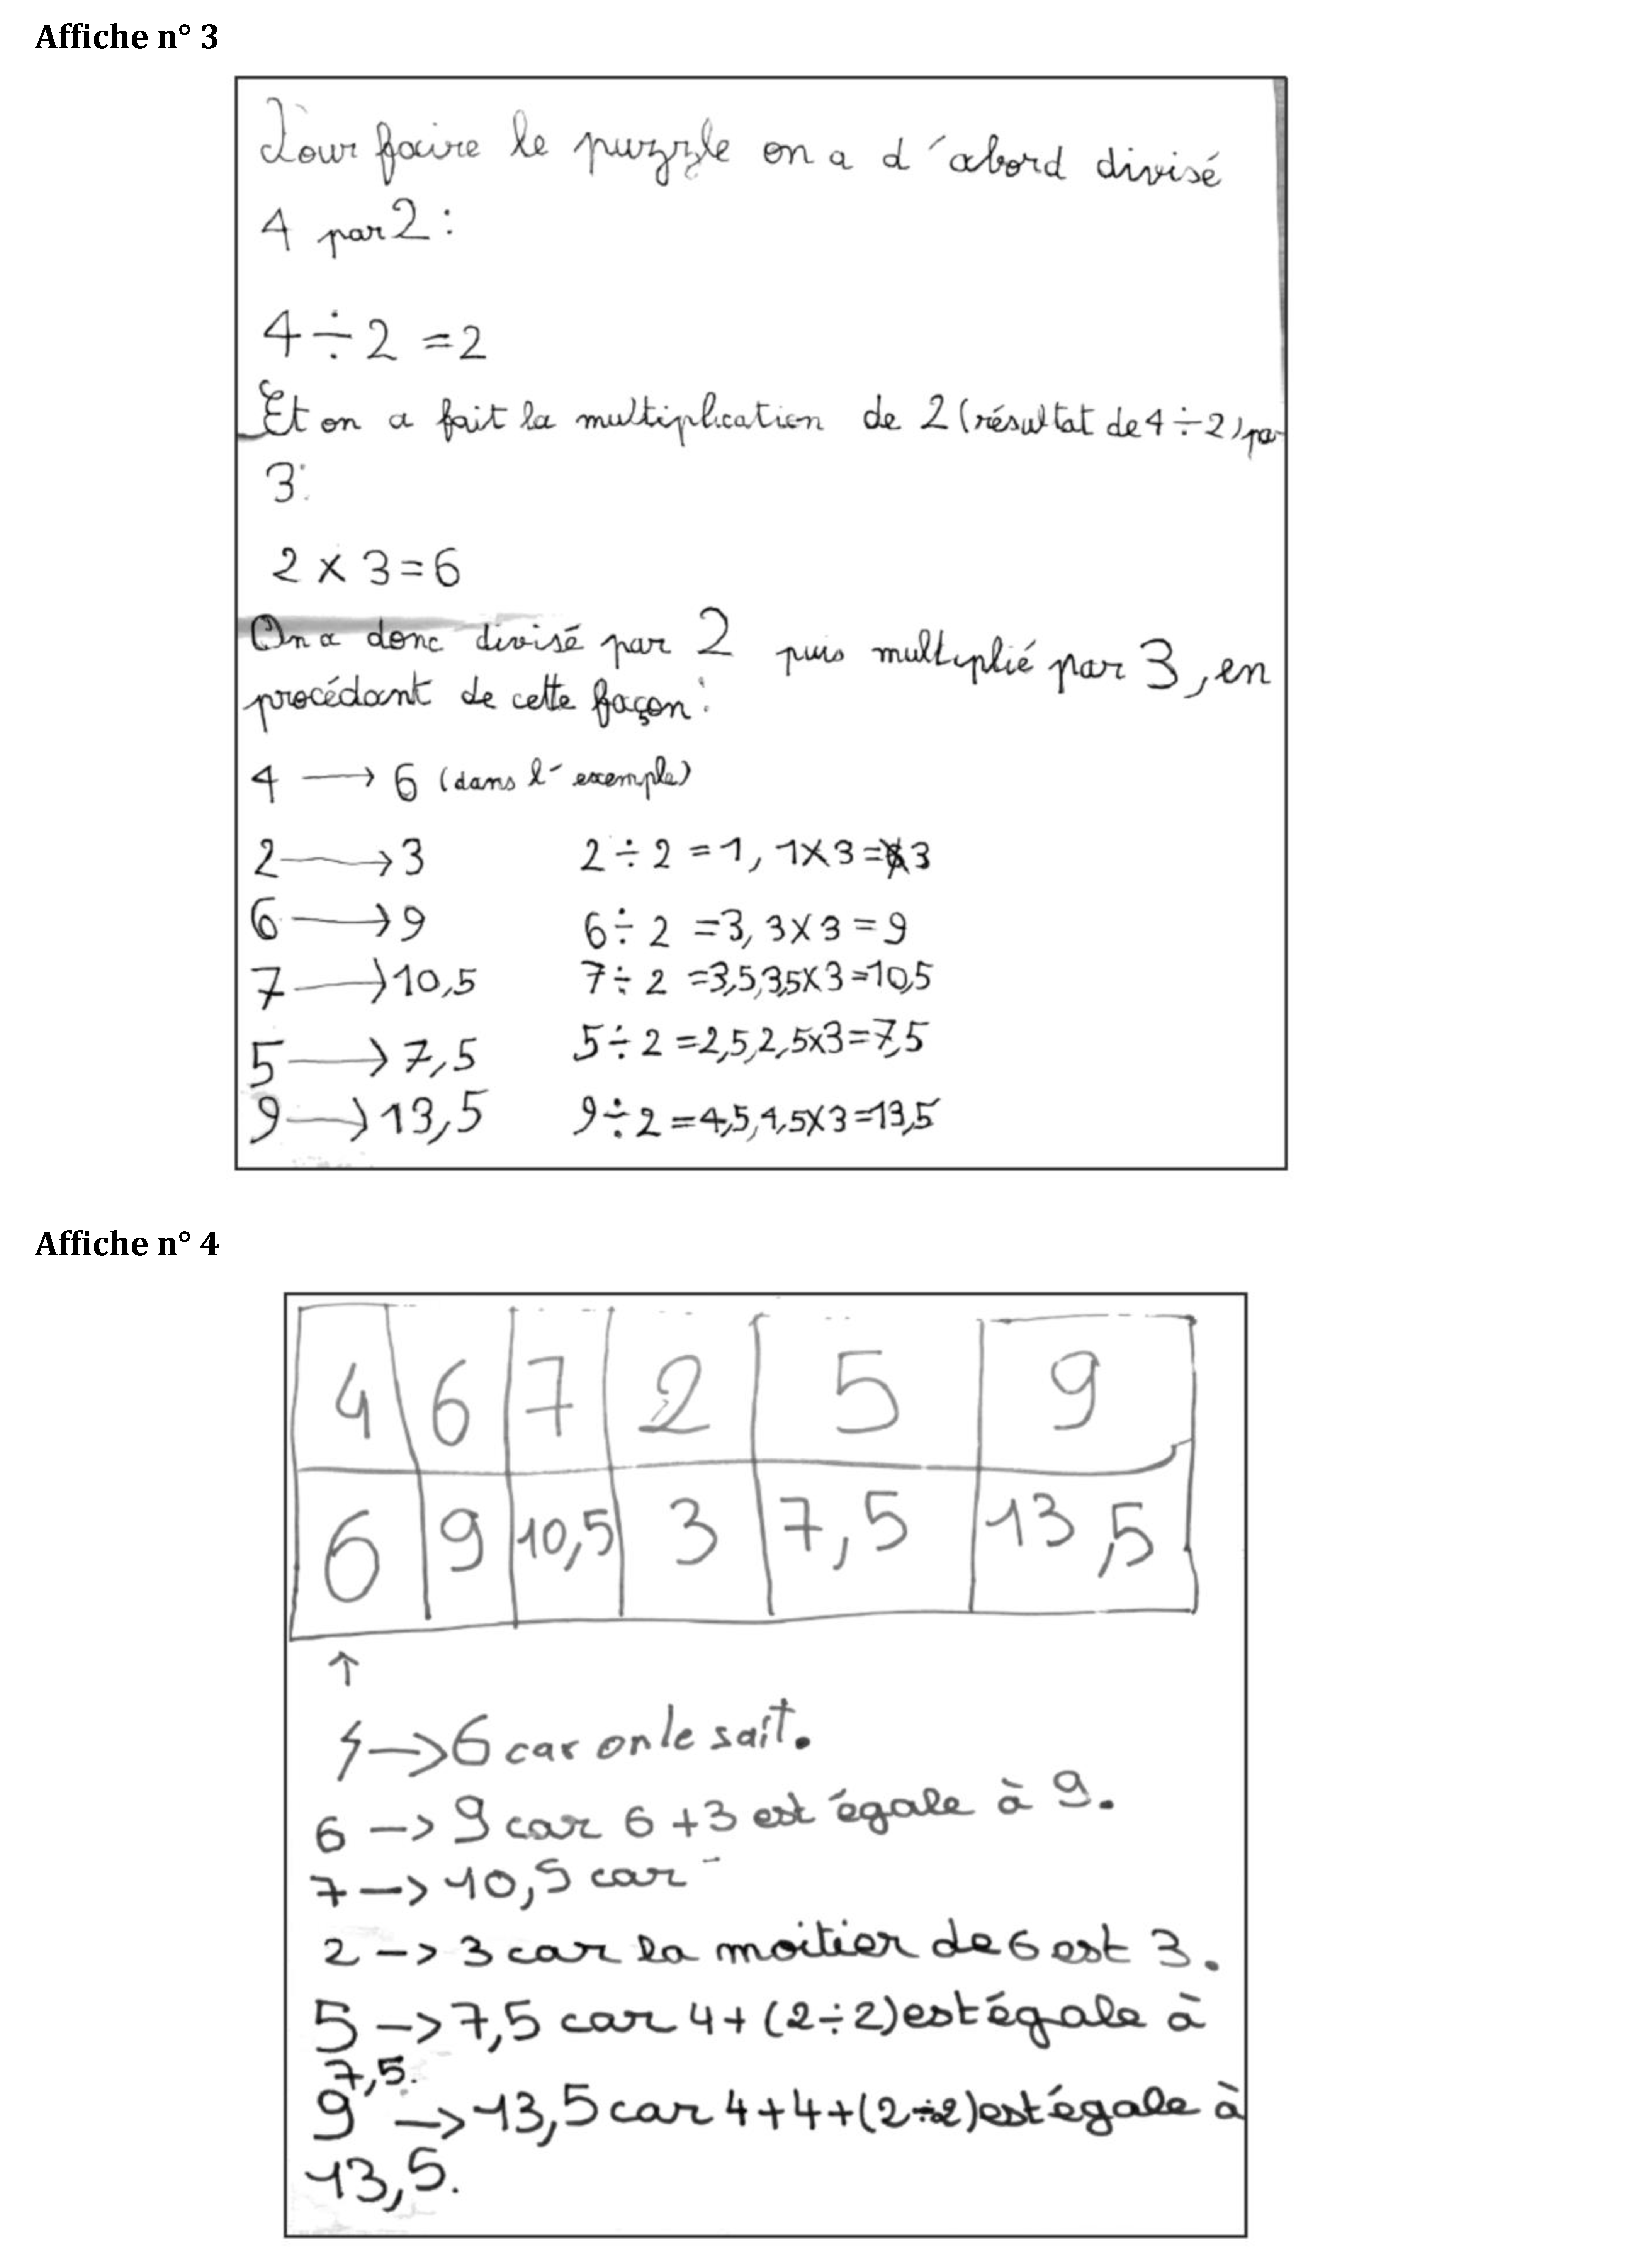 Affiche n° 3
Pour faire le puzzle on a d'abord divisé
4 par 2 :
4 ÷ 2 = 2
Et on a fait la multiplication de 2 (résultat de 4 ÷ 2) par
3:
2 x 3 = 6
On a donc divisé par 2 puis multiplié par 3, en
procédant de cette façon :
4 → 6 (dans l'exemple)
2 → 3 2 ÷ 2 = 1, 1x3 = 3
6 → 9 6 ÷ 2 = 3, 3x3 = 9
7 → 10,5 7 ÷ 2 = 3,5, 3,5x3 = 10,5
5 → 7,5 5 ÷ 2 = 2,5, 2,5x3 = 7,5
9 → 13,5 9 ÷ 2 = 4,5, 4,5x3 = 13,5
Affiche n° 4
4 6 7 2 5 9
6 9 10,5 3 7,5 13,5
↑
4 → 6 car on le sait.
6 → 9 car 6 + 3 est égale à 9.
7 → 10,5 car
2 → 3 car la moitier de 6 est 3.
5 → 7,5 car 4 + (2 ÷ 2) est égale à
7,5.
9 → 13,5 car 4 + 4 + (2 ÷ 2) est égale à
13,5.